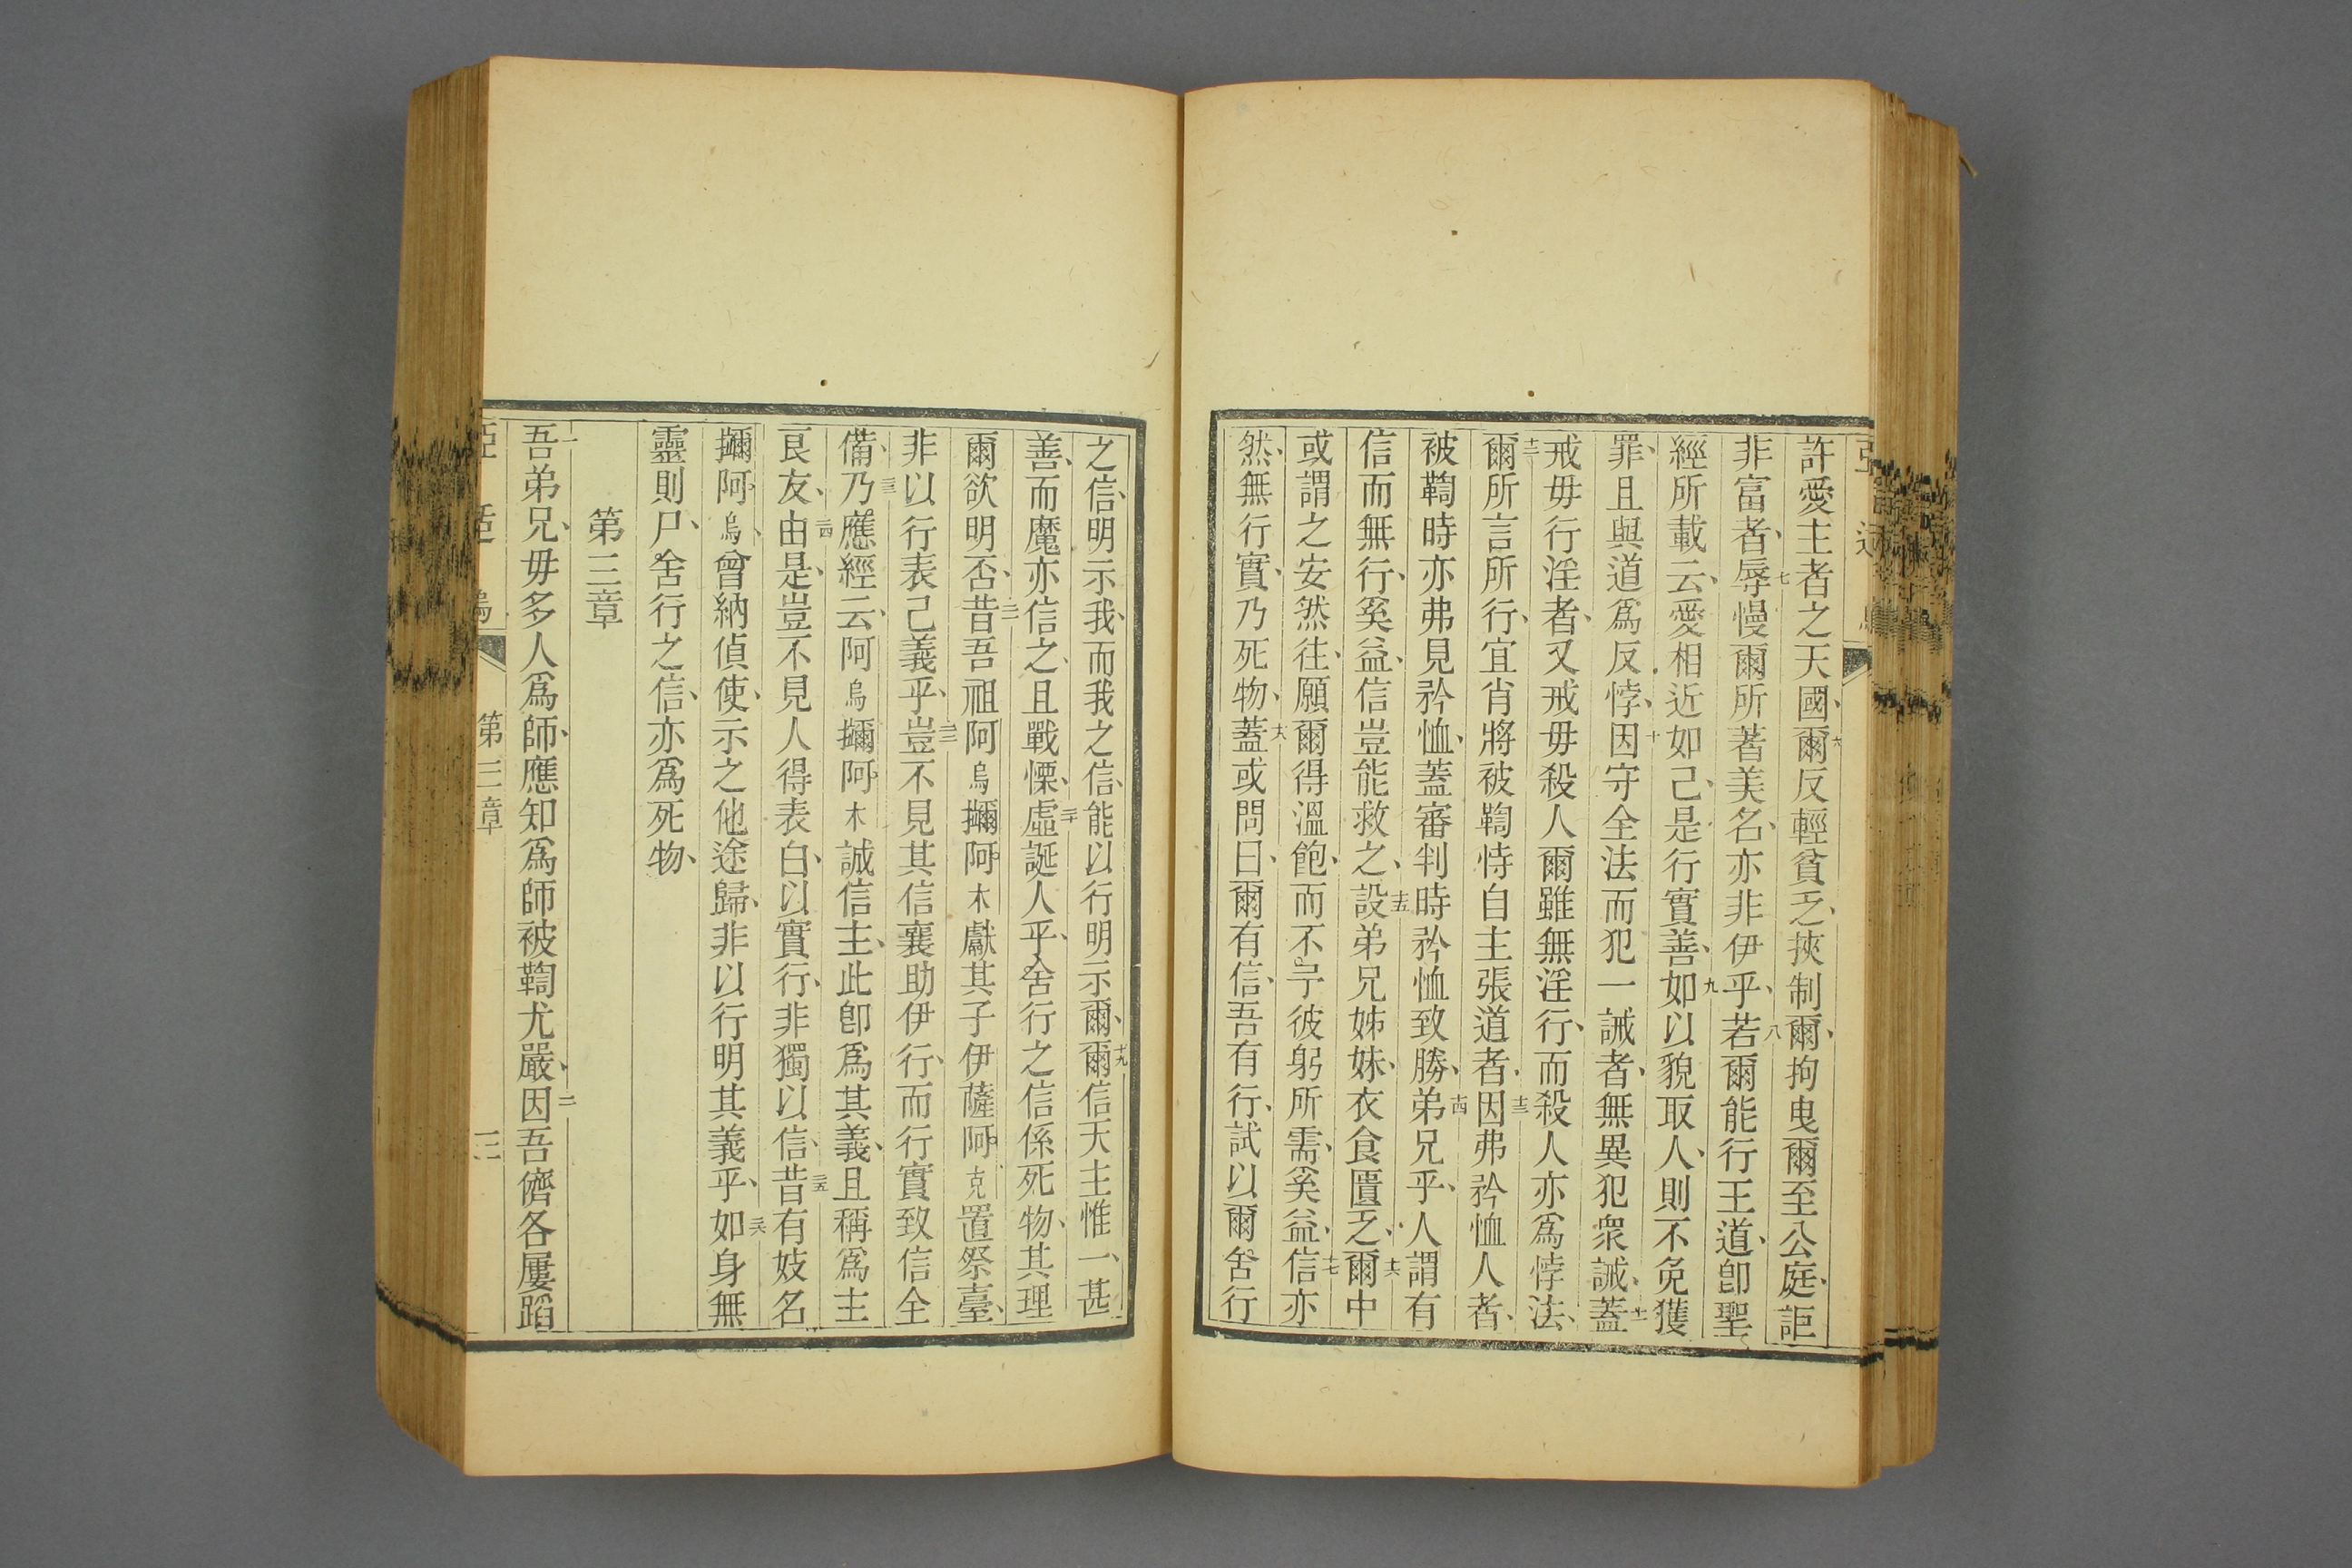 許愛主者之天國、六爾反輕貧乏、挾制爾、拘曳爾至公庭、詎
非富者、七辱慢爾所著美名、亦非伊乎、八若爾能行王道、卽聖
經所載云、愛相近如己、是行實善、九如以貌取人、則不免獲
罪、且與道爲反悖、十因守全法而犯一誡者、無異犯衆誡、十一蓋
戒毋行淫者、又戒毋殺人爾雖無淫行、而殺人亦爲悖法、
十二爾所言所行、宜肖將被鞫恃自主張道者、十三因弗矜恤人者、
被鞫時亦弗見矜恤、蓋審判時矜恤致勝、十四弟兄乎、人謂有
信而無行、奚益、信豈能救之、十五設弟兄姊妹、衣食匱乏、十六爾中
或謂之安然往、願爾得溫飽、而不予彼躬所需、奚益、十七信亦
然、無行實、乃死物、十八蓋或問曰、爾有信、吾有行、試以爾舍行
之信、明示我、而我之信、能以行明示爾、十九爾信天主惟一、甚
善、而魔亦信之、且戰慄、二十虛誕人乎、舍行之信係死物、其理
爾欲明否、二一昔吾祖阿烏擳阿木獻其子伊薩阿克置祭臺、
非以行表己義乎、二二豈不見其信襄助伊行、而行實致信全
備、二三乃應經云、阿烏擳阿木誠信主、此卽爲其義、且稱爲主
良友、二四由是、豈不見人得表白、以實行、非獨以信、二五昔有妓名
擳阿烏、曾納偵使、示之他途歸、非以行明其義乎、二六如身無
靈則尸、舍行之信、亦爲死物、
第三章
一吾弟兄、毋多人爲師、應知爲師被鞫尤嚴、二因吾儕各屢蹈
第三章